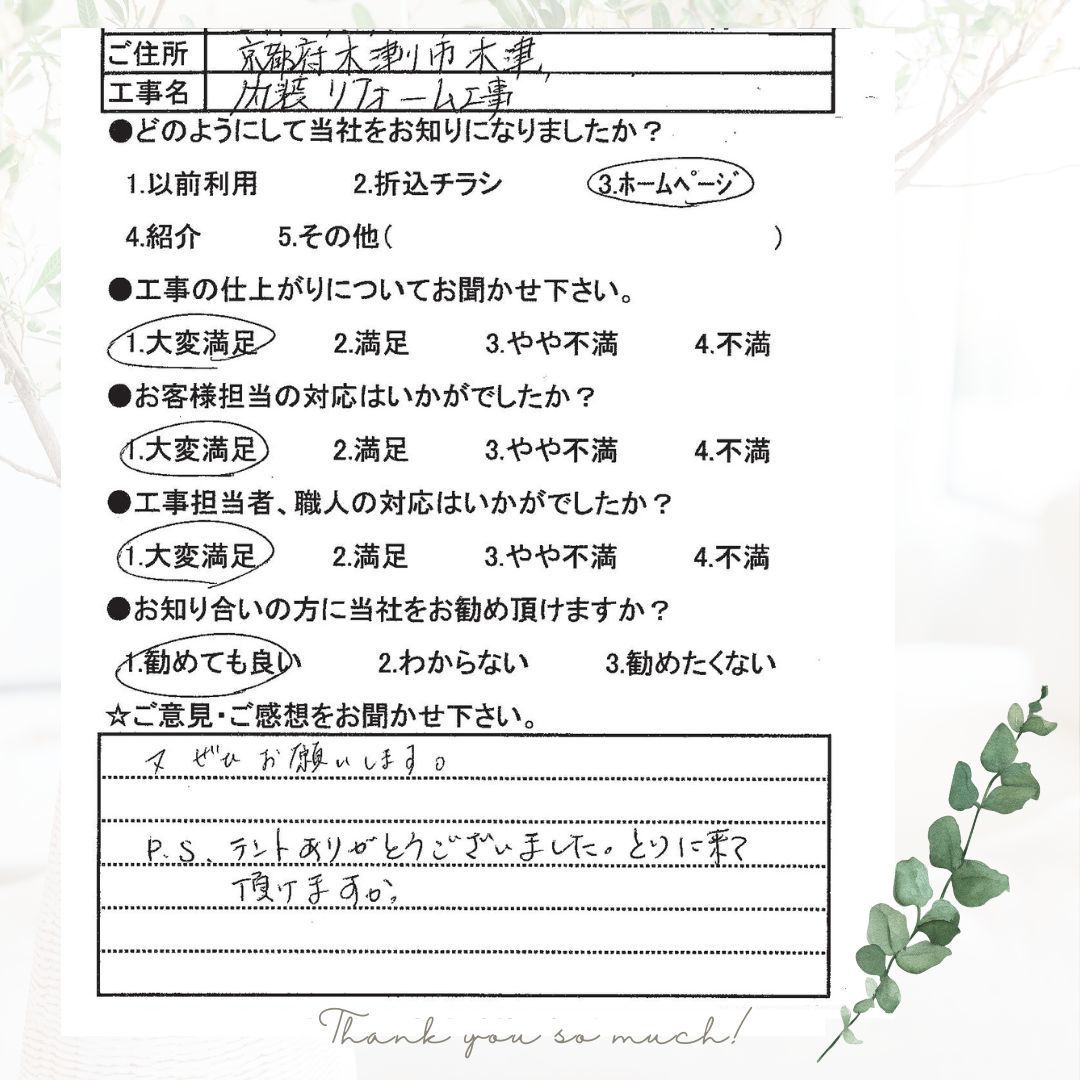 ご住所 京都府木津川市木津
工事名 内装リフォーム工事
●どのようにして当社をお知りになりましたか？
1.以前利用 2.折込チラシ 3.ホームページ
4.紹介 5.その他( )
●工事の仕上がりについてお聞かせ下さい。
1.大変満足 2.満足 3.やや不満 4.不満
●お客様担当の対応はいかがでしたか？
1.大変満足 2.満足 3.やや不満 4.不満
●工事担当者、職人の対応はいかがでしたか？
1.大変満足 2.満足 3.やや不満 4.不満
●お知り合いの方に当社をお勧め頂けますか？
1.勧めても良い 2.わからない 3.勧めたくない
☆ご意見・ご感想をお聞かせ下さい。
又 ぜひ お願いします。
P.S. テントありがとうございました。とりに来て
頂けますか。
Thank you so much!